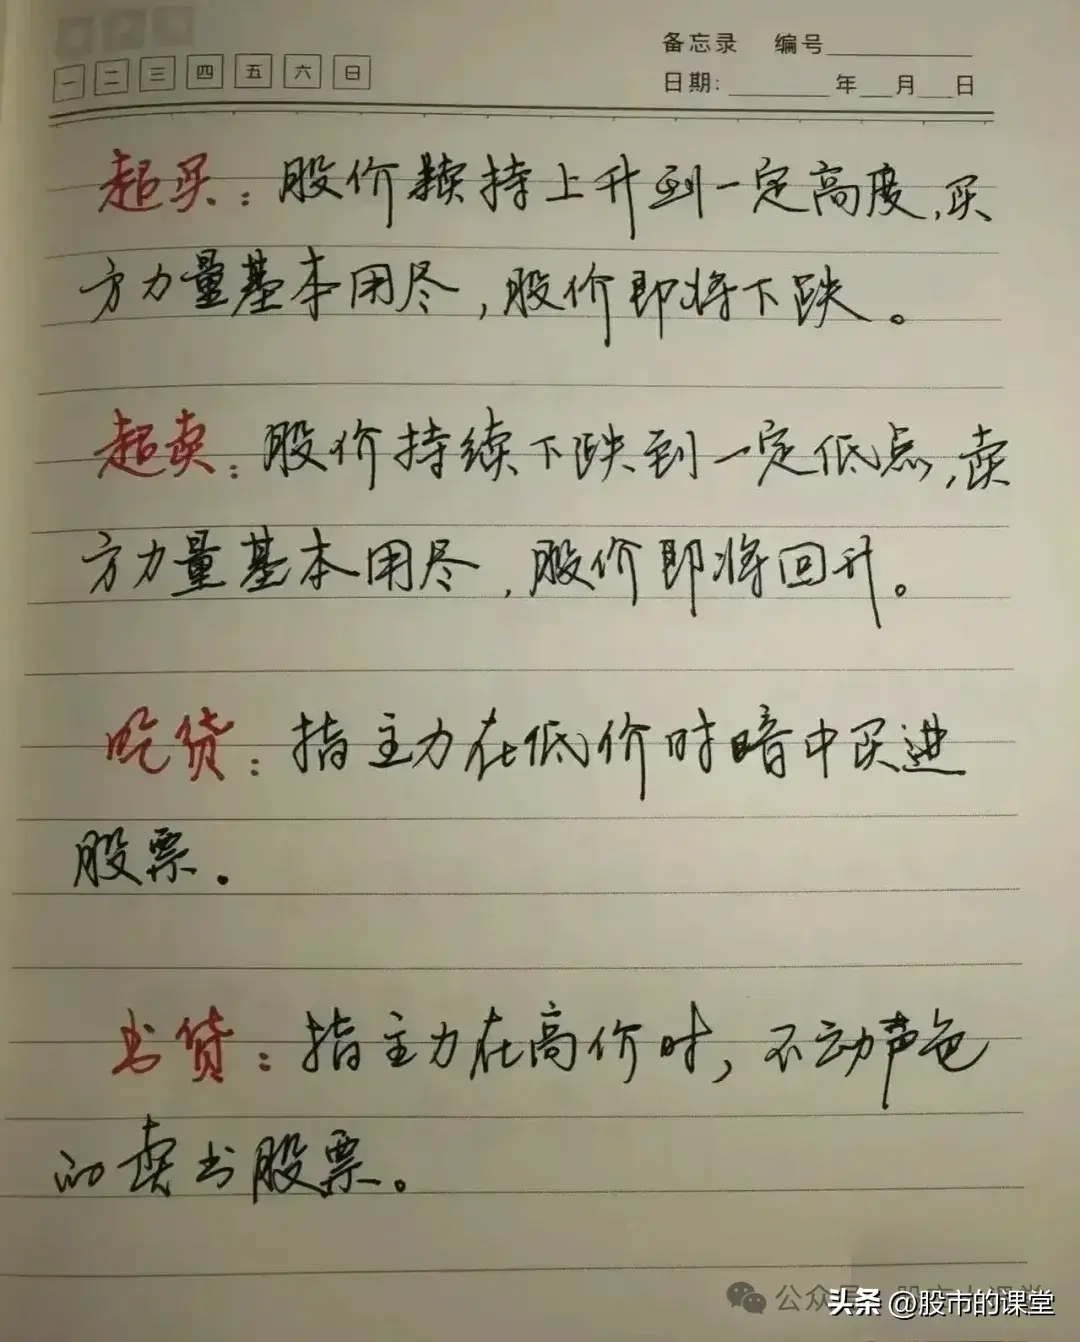 备忘录 编号
一 二 三 四 五 六 日
日期: 年 月 日
超买：股价续持上升到一定高度,买
方力量基本用尽,股价即将下跌。
超卖：股价持续下跌到一定低点,卖
方力量基本用尽,股价即将回升。
吃货：指主力在低价时暗中买进
股票.
出货：指主力在高价时,不动声色
的卖出股票。
公众号
头条 @股市的课堂